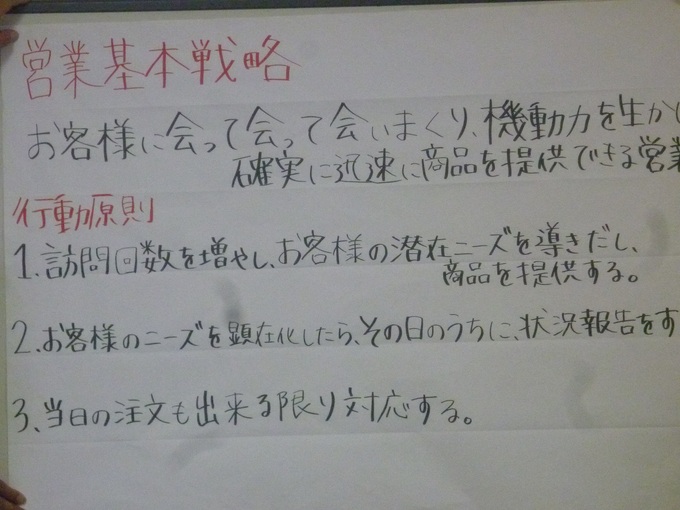 営業基本戦略
お客様に会って会って会いまくり、機動力を生かし
確実に迅速に商品を提供できる営業
行動原則
1、訪問回数を増やし、お客様の潜在ニーズを導きだし、
商品を提供する。
2、お客様のニーズを顕在化したら、その日のうちに、状況報告をす
3、当日の注文も出来る限り対応する。